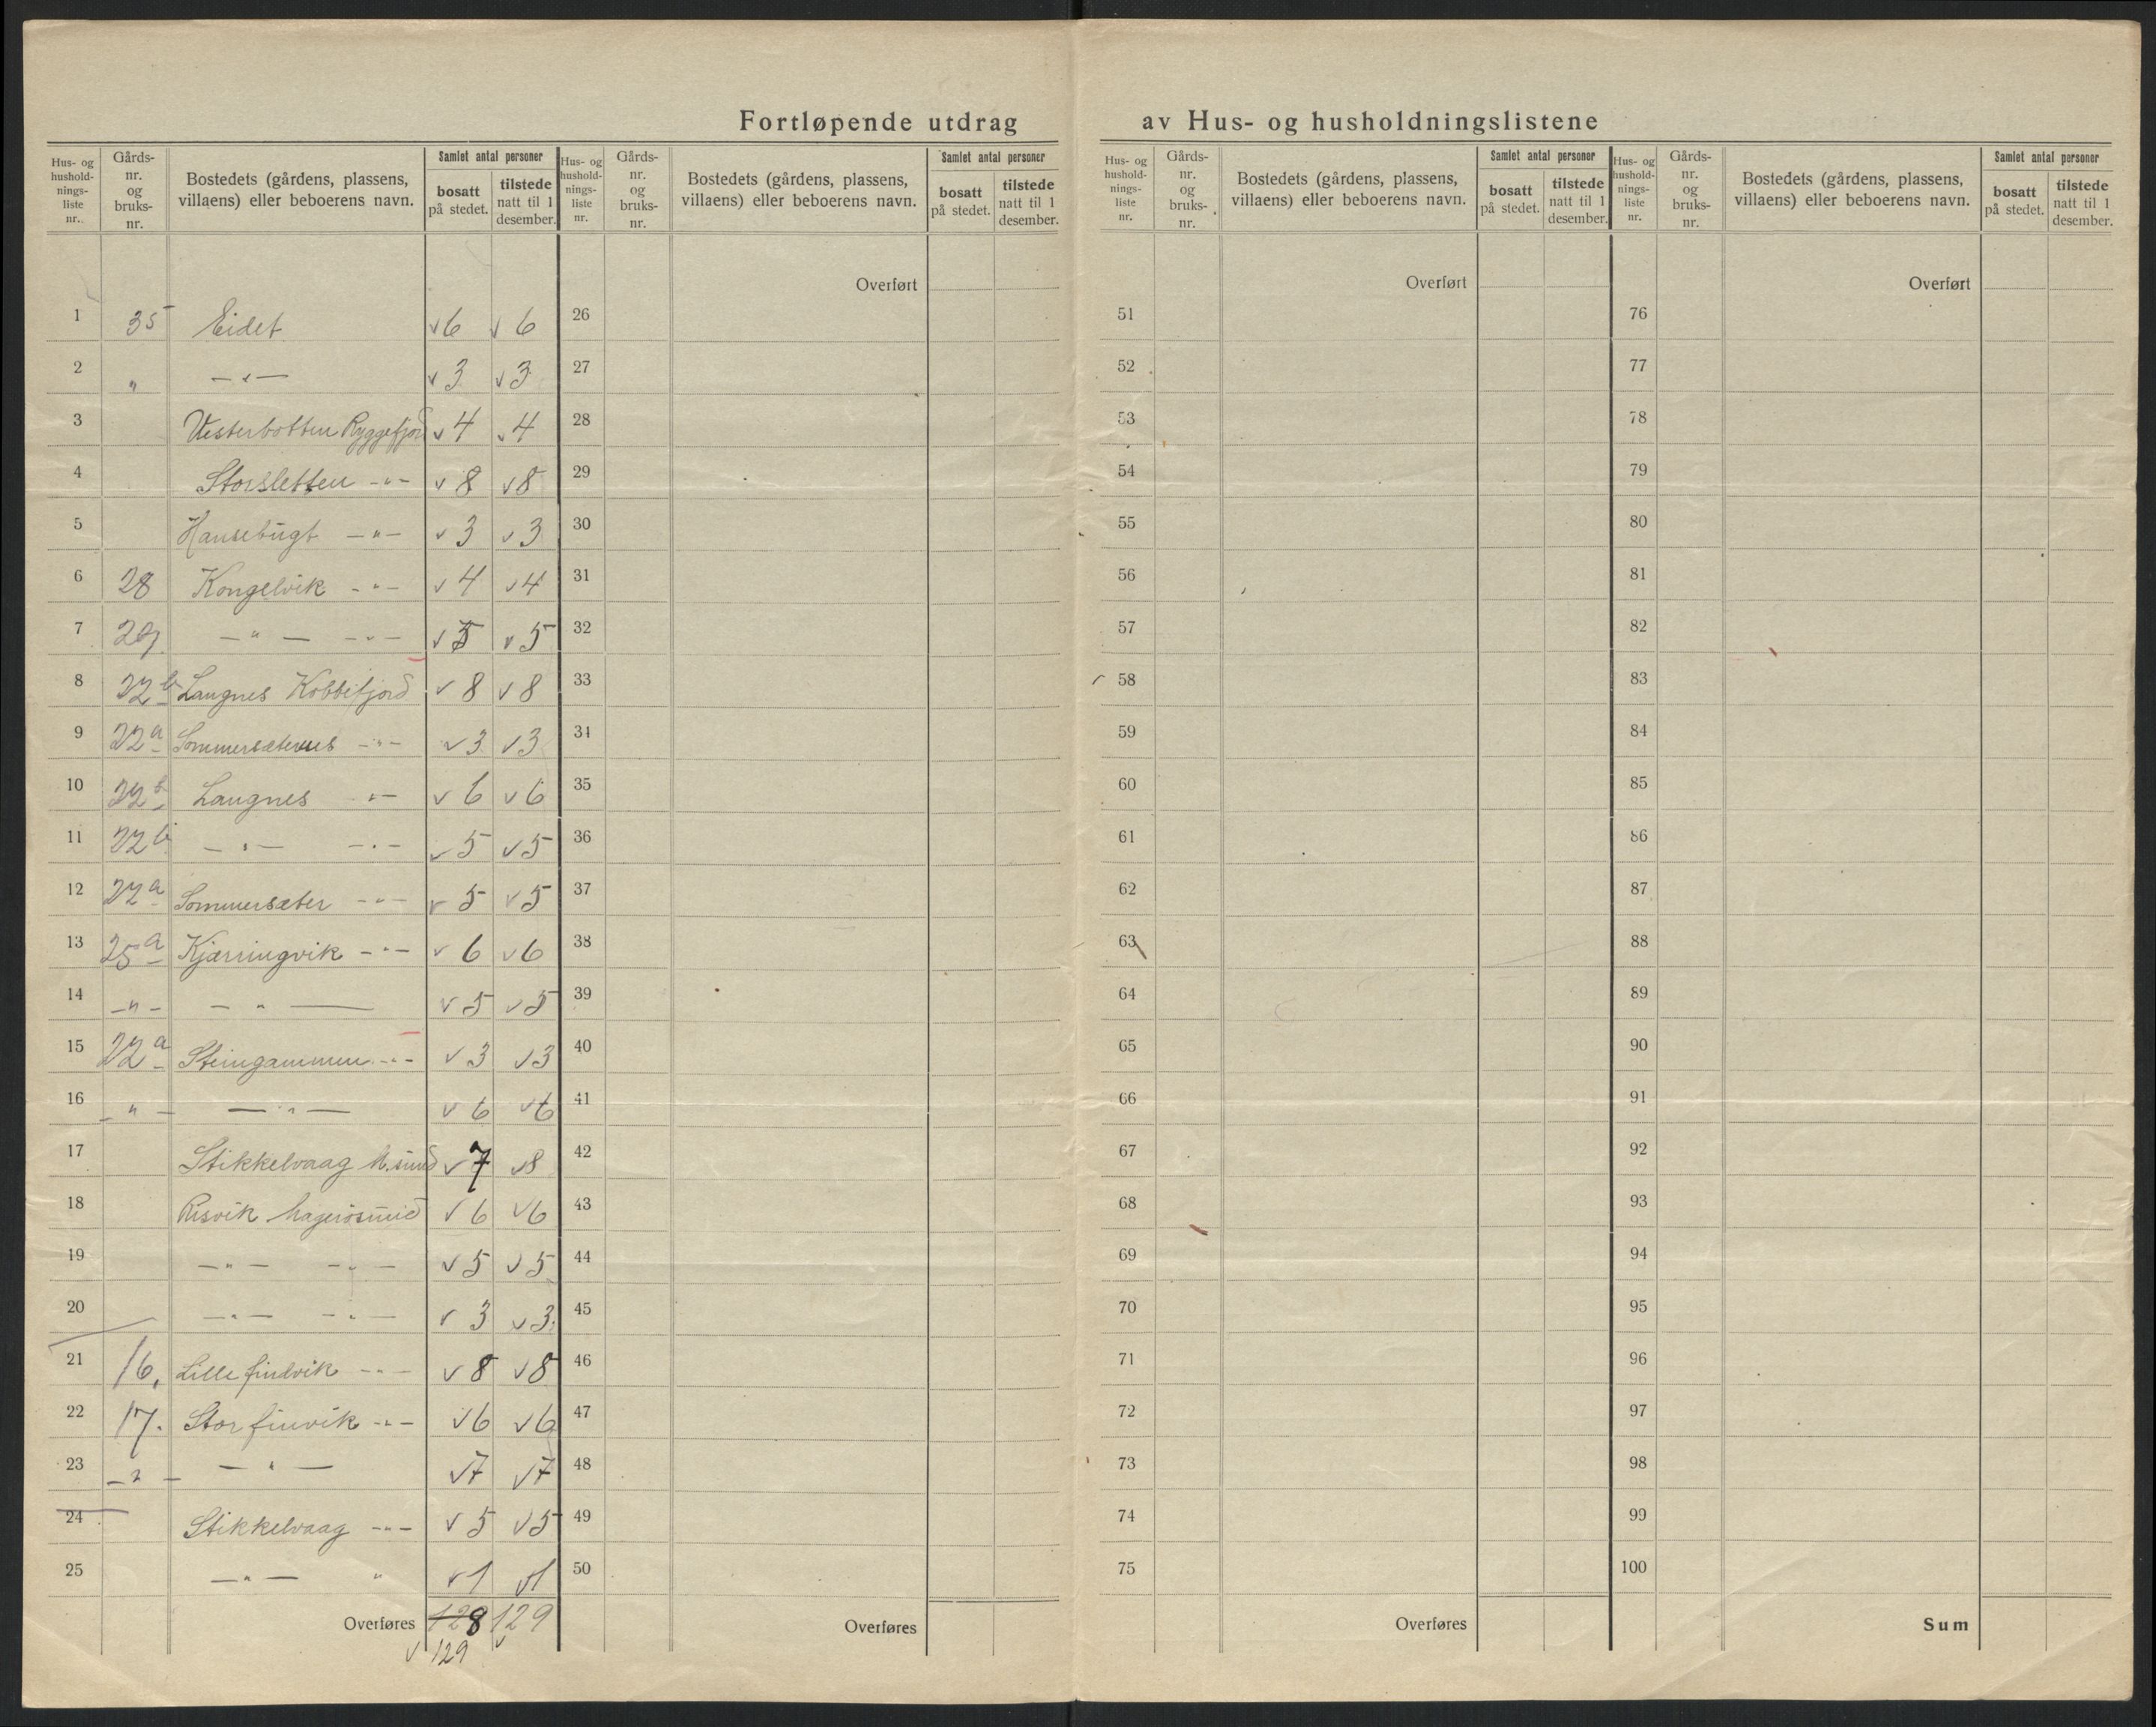 Fortløpende utdrag av Hus- og husholdningslistene
Hus- og hushold-nings-liste nr. | Gårds-nr. og bruks-nr. | Bostedets (gårdens, plassens, villaens) eller beboerens navn. | Samlet antal personer | bosatt på stedet. | tilstede natt til 1 desember.
Hus- og hushold-nings-liste nr. | Gårds-nr. og bruks-nr. | Bostedets (gårdens, plassens, villaens) eller beboerens navn. | Samlet antal personer | bosatt på stedet. | tilstede natt til 1 desember.
Hus- og hushold-nings-liste nr. | Gårds-nr. og bruks-nr. | Bostedets (gårdens, plassens, villaens) eller beboerens navn. | Samlet antal personer | bosatt på stedet. | tilstede natt til 1 desember.
Hus- og hushold-nings-liste nr. | Gårds-nr. og bruks-nr. | Bostedets (gårdens, plassens, villaens) eller beboerens navn. | Samlet antal personer | bosatt på stedet. | tilstede natt til 1 desember.
1 35 Eidet √6 √6
2 " —"— √3 √3
3 Vesterbotten Ryggefjord √4 √4
4 Storsletten -"- √8 √8
5 Hansebugt —"— √3 √3
6 28 Kongelvik -"- √4 √4
7 29 —"— —"— √5 √5
8 22b Langnes Kobbefjord √8 √8
9 22a Sommersæternes -"- √3 √3
10 22b Langnes -"- √6 √6
11 22b —"— —"— √5 √5
12 22a Sommersæter -"- √5 √5
13 25a Kjærringvik -"- √6 √6
14 -"- -"— √5 √5
15 22a Steingammen -"- √3 √3
16 -"- —"— √6 √6
17 Stikkelvaag M.sund √7 √8
18 Risvik Magerösund √6 √6
19 —"— —"— √5 √5
20 —"— —"— √3 √3
21 16. Lille findvik -"- √8 √8
22 17. Stor finvik -"- √6 √6
23 -"- —"— √7 √7
24 Stikkelvaag -"- √5 √5
25 —"— " √1 √1
Overføres 128 129
√ 129 √
Overført
26
27
28
29
30
31
32
33
34
35
36
37
38
39
40
41
42
43
44
45
46
47
48
49
50
Overføres
Overført
51
52
53
54
55
56
57
58
59
60
61
62
63
64
65
66
67
68
69
70
71
72
73
74
75
Overføres
Overført
76
77
78
79
80
81
82
83
84
85
86
87
88
89
90
91
92
93
94
95
96
97
98
99
100
Sum